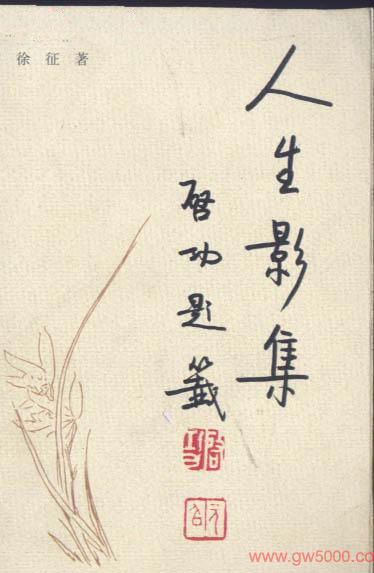 徐 征 著
人生影集
启功题籤
www.gw5000.co